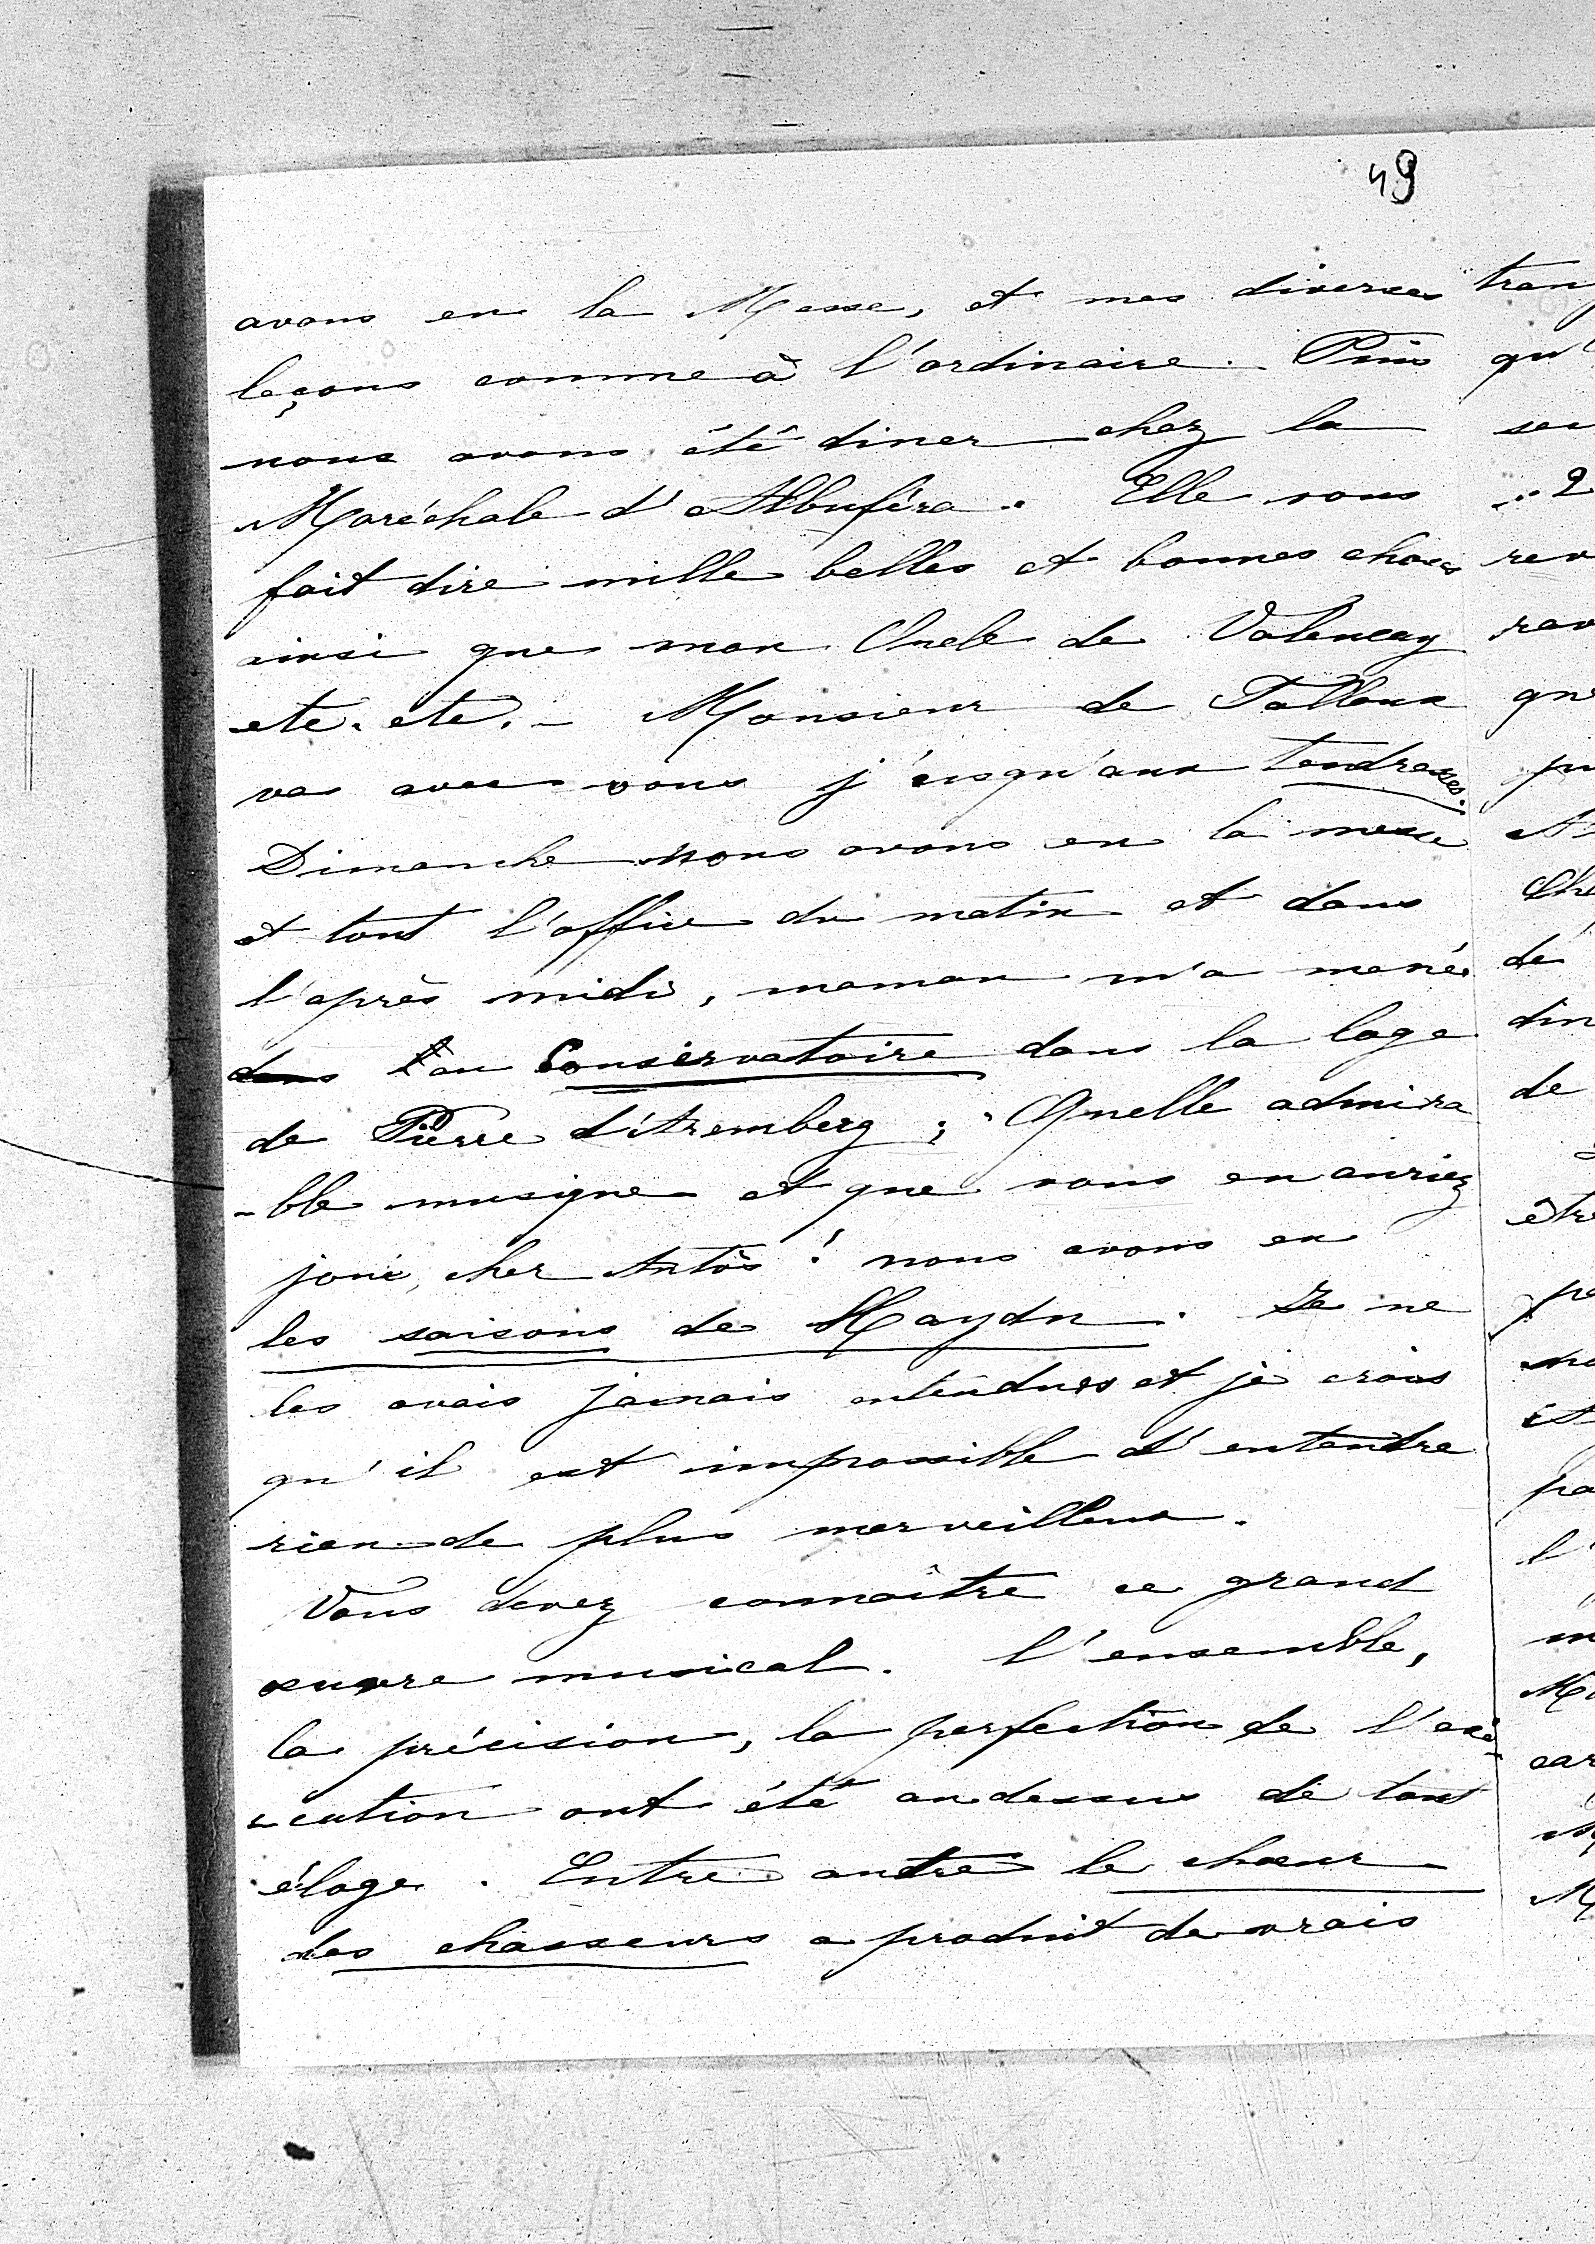 49
avons eu la Messe, et mes diverses
leçons comme à l'ordinaire. Puis
nous avons été diner chez la
Maréchale d'Albuféra. Elle vous
fait dire mille belles et bonnes choses
ainsi que mon Oncle de Valençay
etc. etc. – Monsieur de Falloux
va avec vous jusqu'aux tendresses.
Dimanche nous avons eu la messe
et tout l'office du matin et dans
l'après midi, maman m'a menée
au Conservatoire dans la loge
de Pierre d'Aremberg ; Quelle admira
-ble musique et que vous en auriez
joui, cher Antos ! nous avons eu
les saisons de Haydn. Je ne
les avais jamais entendues et je crois
qu'il est impossible d'entendre
rien de plus merveilleux.
Vous devez connaître ce grand
œuvre musical. l'ensemble,
la précision, la perfection de l'exé-
-cution ont été audessus de tout
éloge. Entre autre le chœur
des chasseurs a produit de vrais